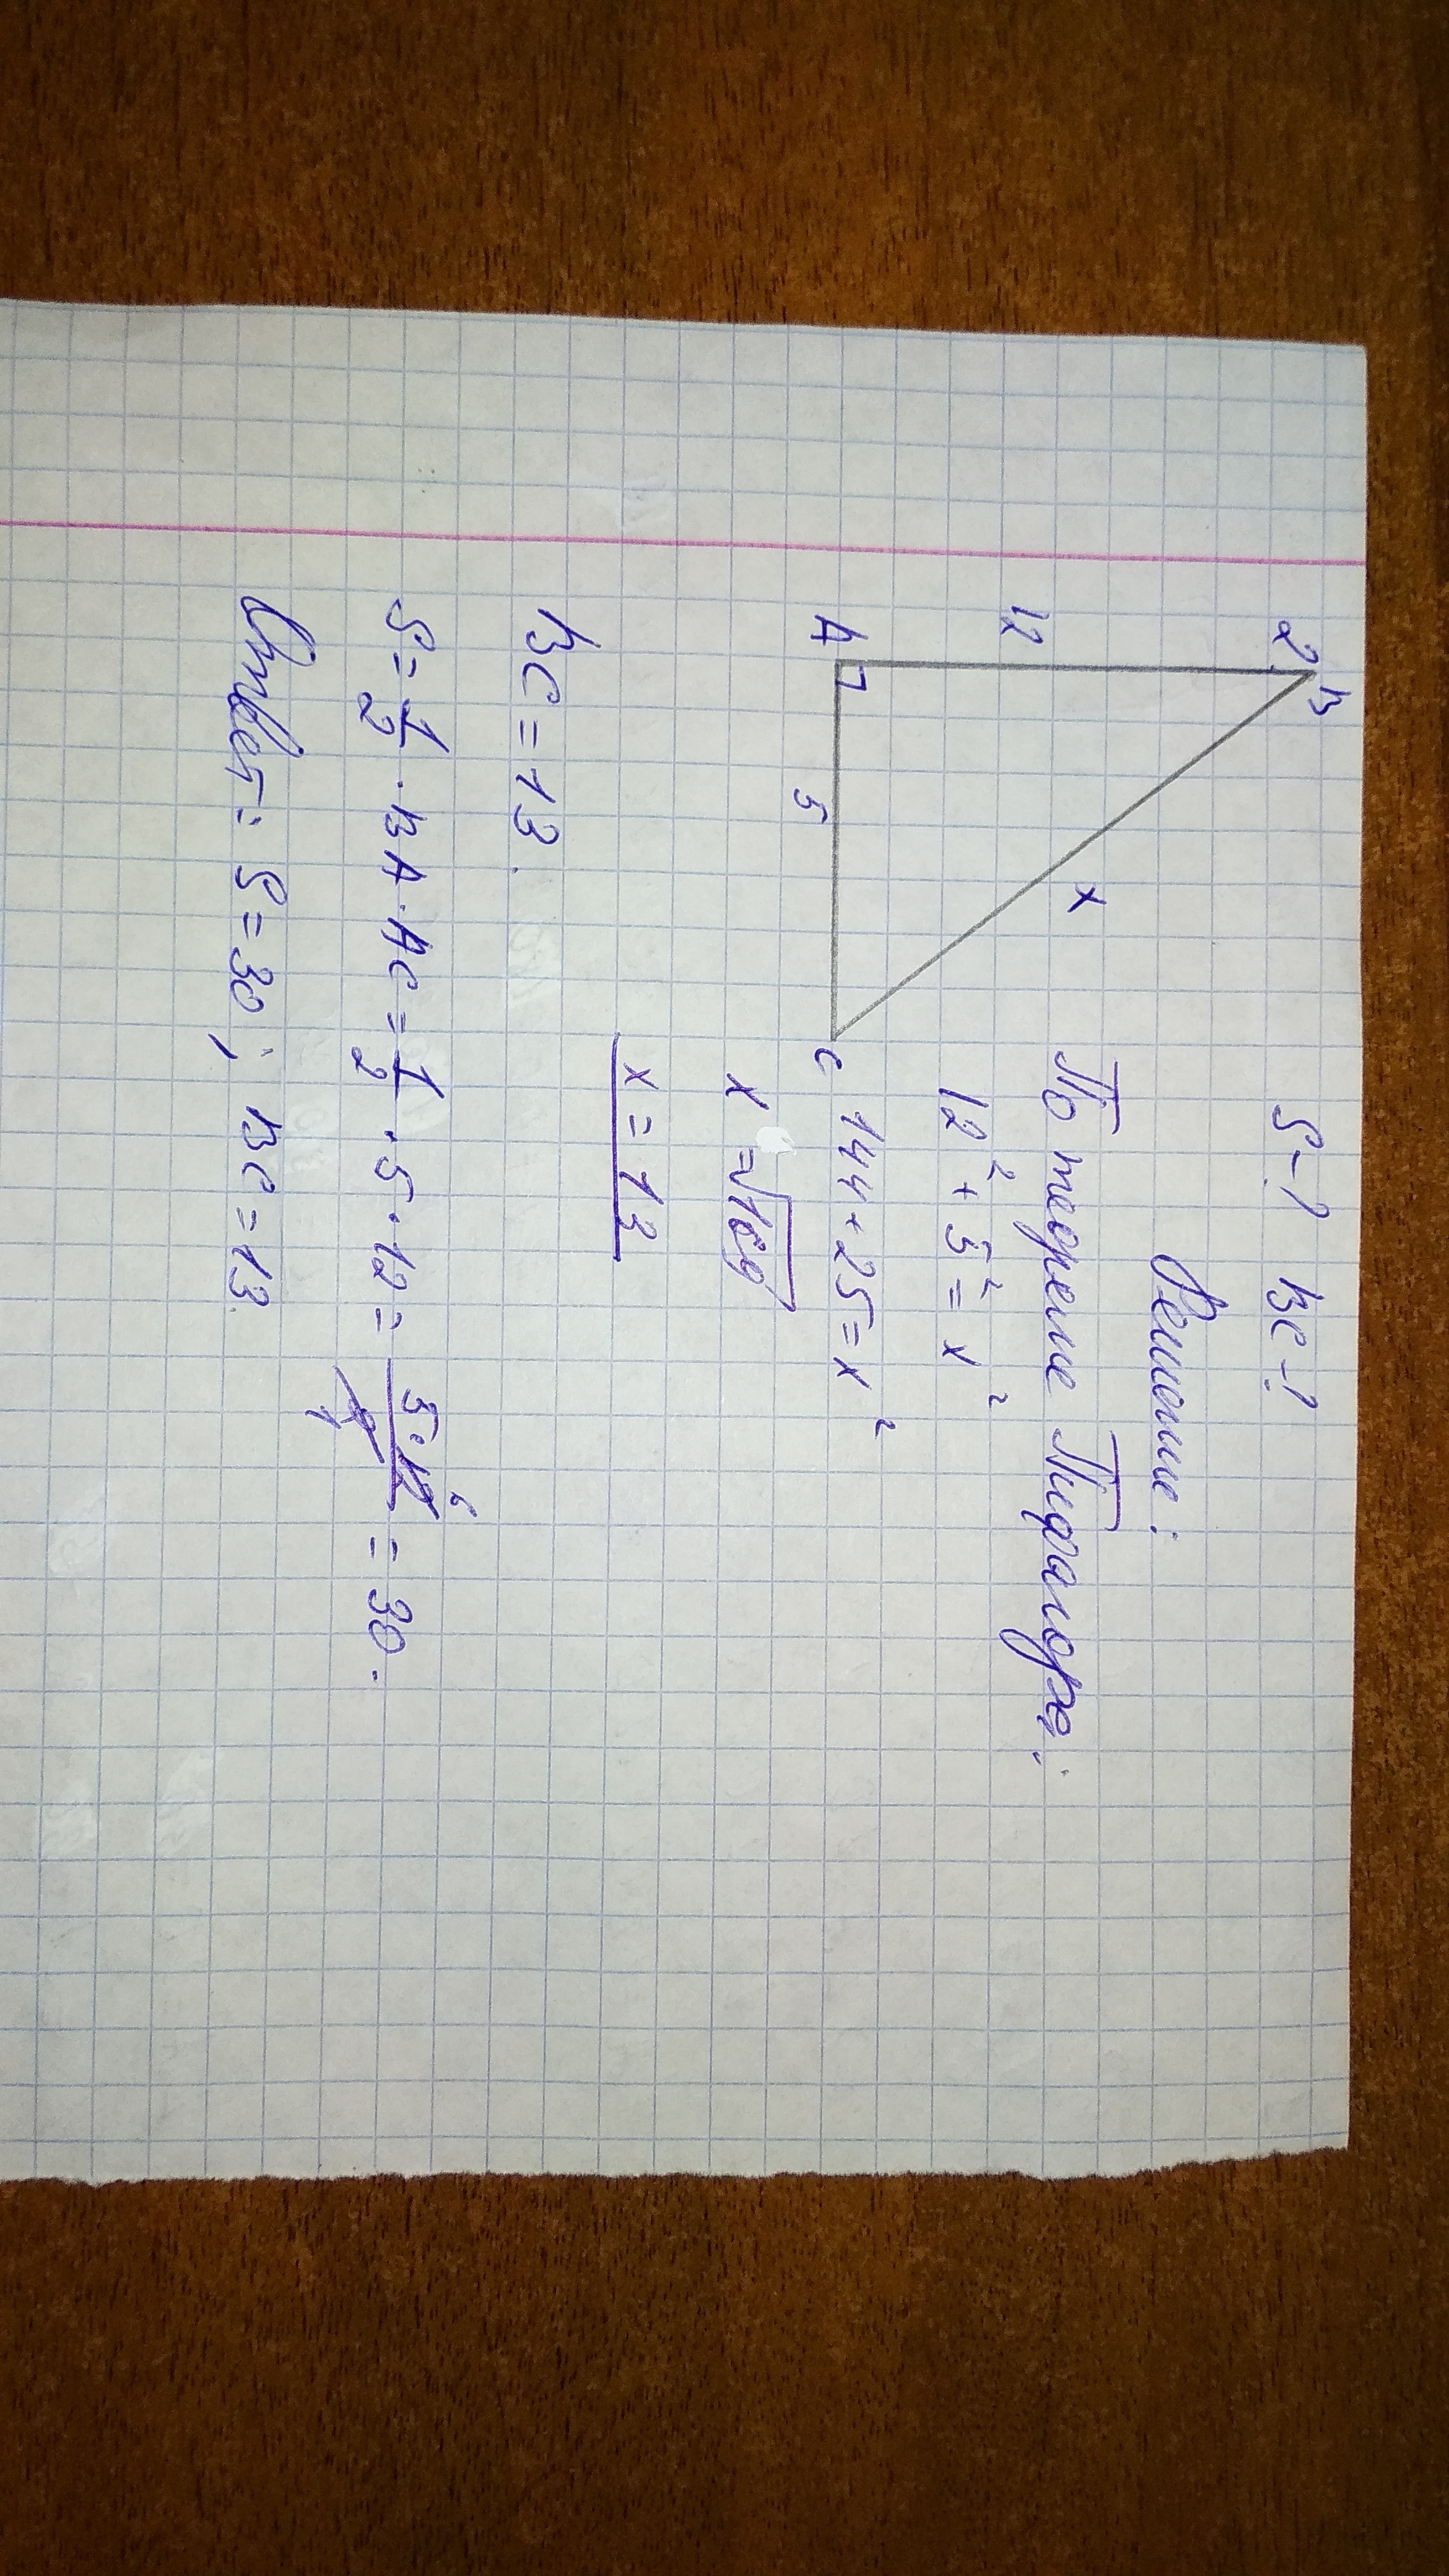 2. B
S-? BC-?
Решение:
12
x
По теореме Пифагора:
12² + 5² = x²
A
5
C
144 + 25 = x²
x = √169
x = 13
BC = 13.
S = 1/2 · BA · AC = 1/2 · 5 · 12 = 5·12/2 = 30.
6
1
Ответ: S = 30; BC = 13.